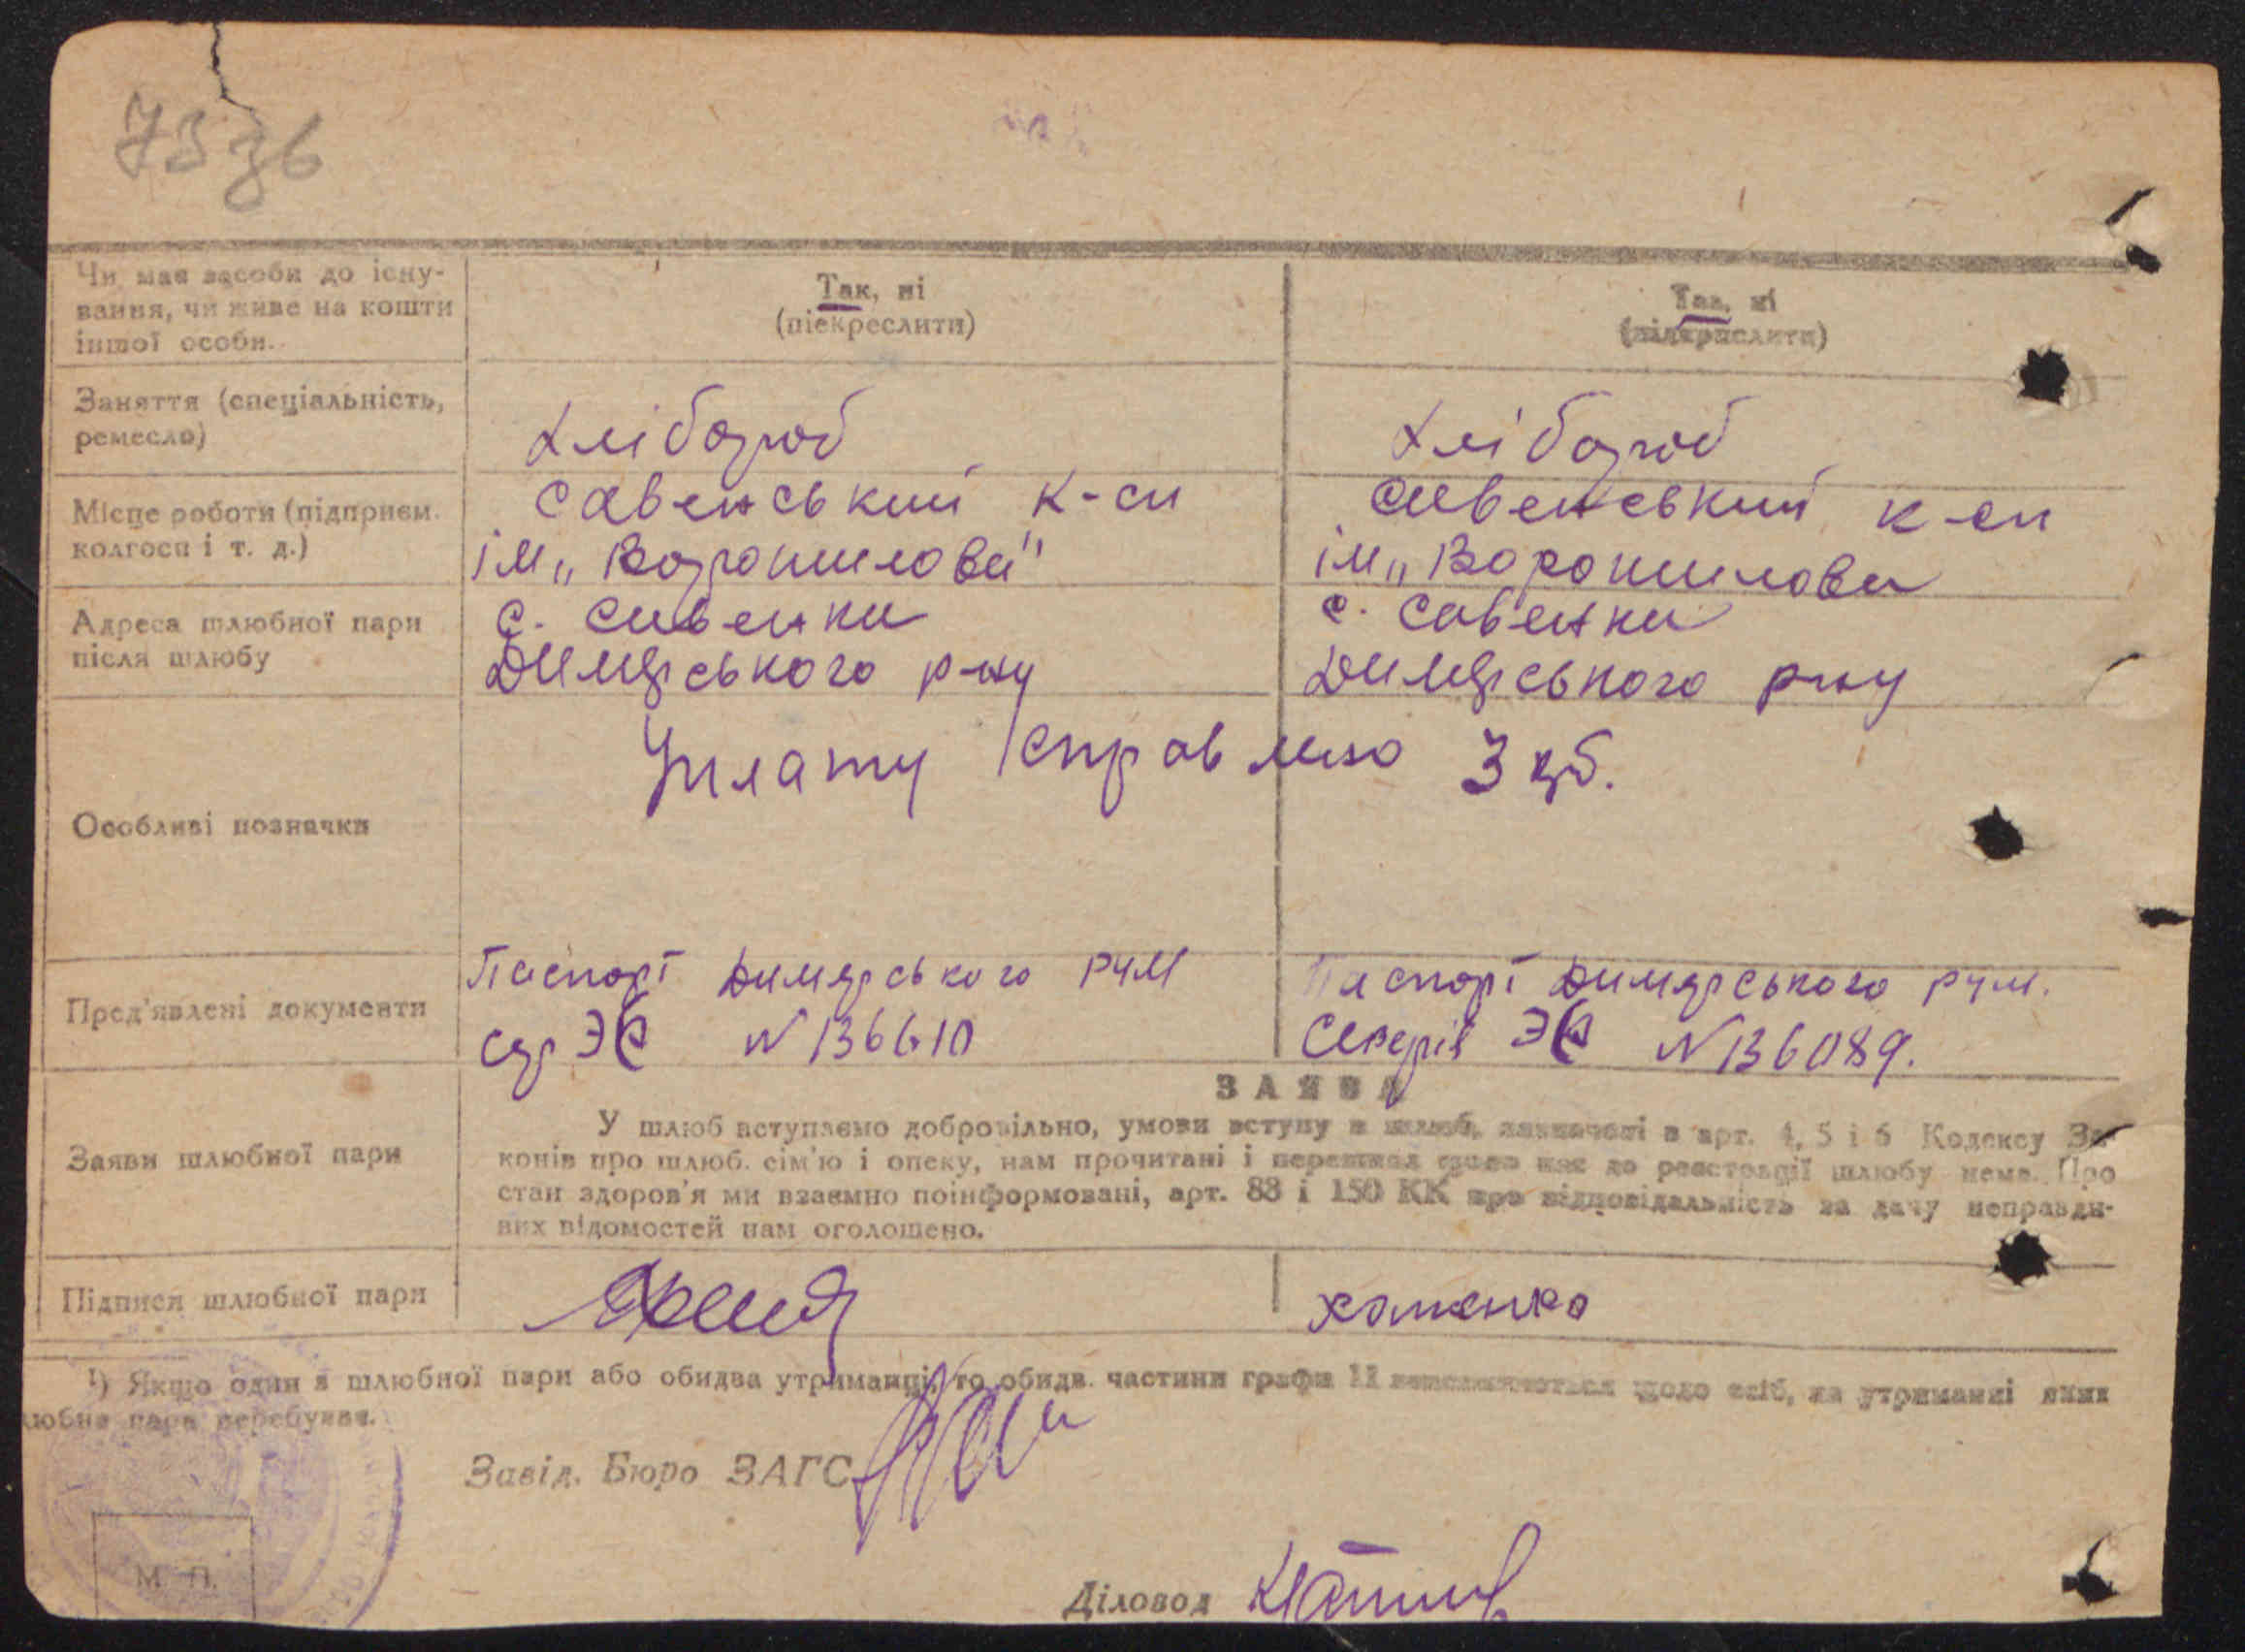 73 зв
Чи має засоби до існу-
вання, чи живе на кошти
іншої особи.
Так, ні
(піекреслити)
Так, ні
(підкреслити)
Заняття (спеціальність,
ремесло)
Хлібороб
Хлібороб
Місце роботи (підприєм.
колгосп і т. д.)
Савенський к-сп
ім „Ворошилова"
Савенський к-сп
ім „Ворошилова
Адреса шлюбної пари
після шлюбу
с. Савенки
Димерського р-ну
с. Савенки
Димерського р-ну
Особливі позначки
Уплату справлено 3 крб.
Пред'явлені документи
Паспорт Димерського РЧМ
сер ЭФ N 136610
Паспорт Димерського РЧМ.
ЭФ N 136089.
Заяви шлюбної пари
ЗАЯВА
У шлюб вступаємо добровільно, умови вступу в шлюб, зазначені в арт. 4, 5 і 6 Кодексу За-
конів про шлюб. сім'ю і опеку, нам прочитані і перешкод до реєстрації шлюбу нема. Про
стан здоров'я ми взаємно поінформовані, арт. 88 і 150 КК про відповідальність за дачу неправди-
вих відомостей нам оголошено.
Підписи шлюбної пари
Хоменко
¹) Якщо один з шлюбної пари або обидва утриманці, то обидв. частини графи 11 заповнюються щодо осіб, на утриманні яких
юбна пара перебуває.
Завід. Бюро ЗАГС
М. П.
Діловод